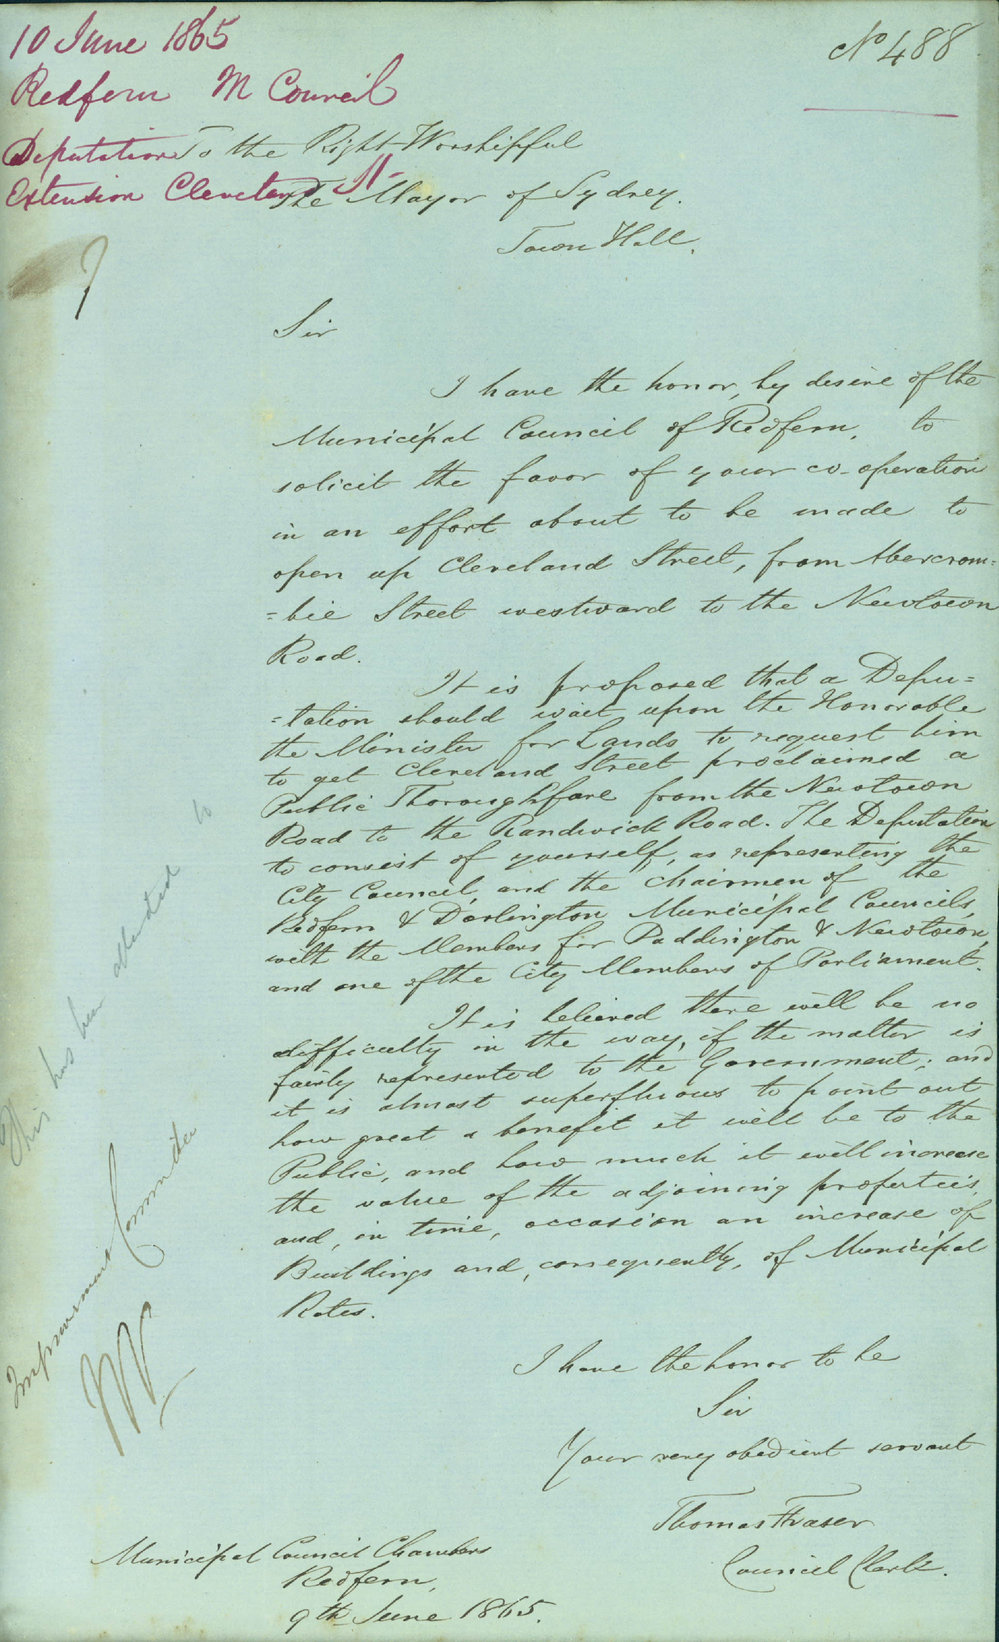 10 June 1865
Redfern M Council
Deputation
Extension Cleveland St-
No 488
To the Right Worshipful
The Mayor of Sydney.
Town Hall.
Sir
I have the honor, by desire of the
Municipal Council of Redfern, to
solicit the favor of your co-operation
in an effort about to be made to
open up Cleveland Street, from Abercrom=
=bie Street westward to the Newtown
Road.
It is proposed that a Depu=
=tation should wait upon the Honorable
the Minister for Lands to request him
to get Cleveland Street proclaimed a
Public Thoroughfare from the Newtown
Road to the Randwick Road. The Deputation
to consist of yourself, as representing the
City Council, and the chairmen of the
Redfern & Darlington Municipal Councils,
with the Members for Paddington & Newtown,
and one of the City Members of Parliament.
It is believed there will be no
difficulty in the way, if the matter is
fairly represented to the Government; and
it is almost superfluous to point out
how great a benefit it will be to the
Public, and how much it will increase
the value of the adjoining properties,
and, in time, occasion an increase of
Buildings and, consequently, of Municipal
Rates.
I have the honor to be
Sir
Your very obedient servant
Thomas Fraser
Council Clerk.
Municipal Council Chambers
Redfern,
9th June 1865.
This has been attended to
Improvement Committee